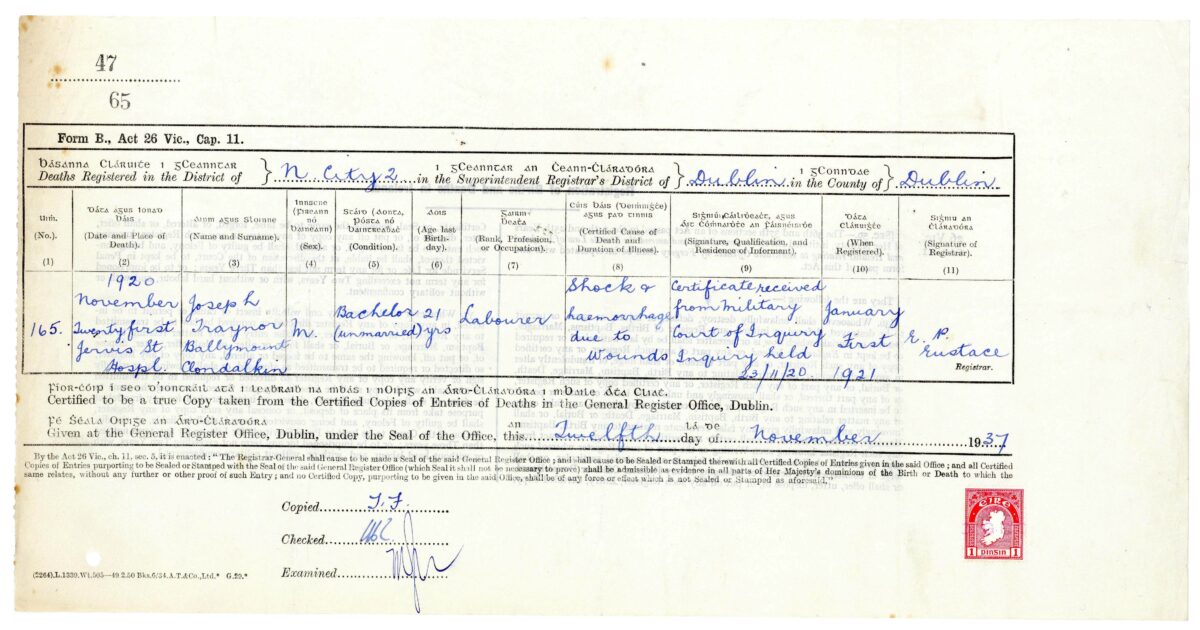 47
65
Form B., Act 26 Vic., Cap. 11.
Básanna Cláruiġṫe i gCeanntar
Deaths Registered in the District of
N. City 2
i gCeanntar an Ċeann-Ċláraḋóra
in the Superintendent Registrar's District of
Dublin
i gConndae
in the County of
Dublin
Uiṁ.
(No.).
(1)
Dáta agus Ionad
Báis
(Date and Place of
Death).
(2)
Ainm agus Sloinne
(Name and Surname).
(3)
Innscne
(Fireann
nó
Baineann)
(Sex).
(4)
Stáid (Aonta,
Pósta nó
Baintreaḃaċ)
(Condition).
(5)
Aois
(Age last
Birth-
day).
(6)
Gairm-
Beaṫa
(Rank, Profession,
or Occupation).
(7)
Cúis Báis (Deiṁniġṫe)
agus fad tinnis
(Certified Cause of
Death and
Duration of Illness).
(8)
Signiú, Cáiliḋeaċt, agus
Áit Ċoṁnuiḋṫe an Fáisnéisiḋe
(Signature, Qualification, and
Residence of Informant).
(9)
Dáta
Cláruiġṫe
(When
Registered).
(10)
Signiú an
Ċláraḋóra
(Signature of
Registrar).
(11)
165.
1920
November
Twenty first
Jervis St
Hospl.
Joseph
Traynor
Ballymount
Clondalkin
M.
Bachelor
(unmarried)
21
yrs
Labourer
Shock &
haemorrhage
due to
Wounds
Certificate received
from Military
Court of Inquiry
Inquiry held
23/11/20
January
First
1921
E. P.
Eustace
Registrar.
Fíor-ċóip í seo d'iontráil atá i leaḃraiḃ na mbás i nOifig an Árd-Ċláraḋóra i mBaile Áṫa Cliaṫ.
Certified to be a true Copy taken from the Certified Copies of Entries of Deaths in the General Register Office, Dublin.
Fé Ṡéala Oifige an Árd-Ċláraḋóra
Given at the General Register Office, Dublin, under the Seal of the Office,
an
this
Twelfth
lá de
day of
November
1937
By the Act 26 Vic., ch. 11, sec. 5, it is enacted: "The Registrar-General shall cause to be made a Seal of the said General Register Office; and shall cause to be Sealed or Stamped therewith all Certified Copies of Entries given in the said Office; and all Certified
Copies of Entries purporting to be Sealed or Stamped with the Seal of the said General Register Office (which Seal it shall not be necessary to prove) shall be admissible as evidence in all parts of Her Majesty's dominions of the Birth or Death to which the
same relates, without any further or other proof of such Entry; and no Certified Copy, purporting to be given in the said Office, shall be of any force or effect which is not Sealed or Stamped as aforesaid."
Copied
Checked
Examined
(2264).L.1339.Wt.565—49.2.50 Bks.6/34.A.T.&Co.,Ltd.* G.29.*
ÉIRE
1 PINSIN 1